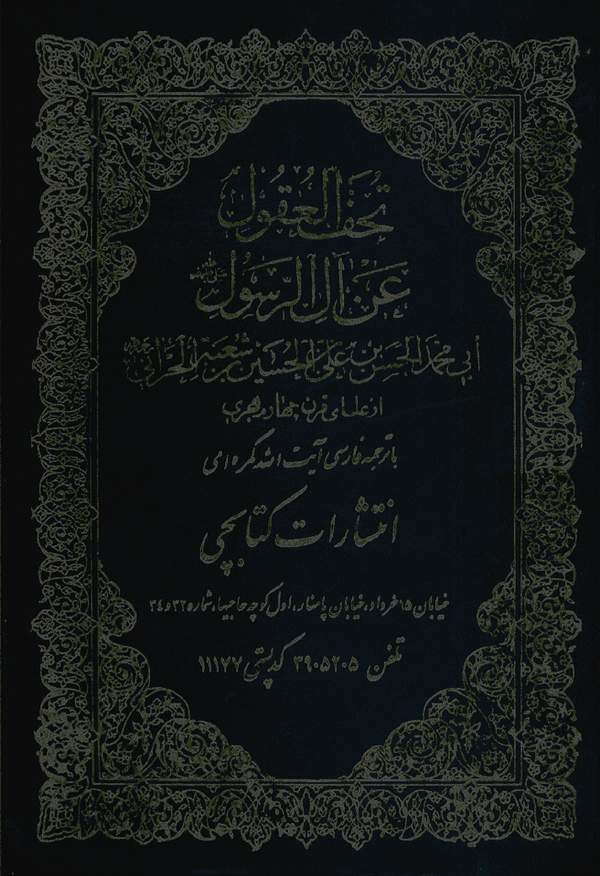 تحف العقول
عن آل الرسول
أبي محمد الحسن بن علي بن الحسين بن شعبة الحراني
از علمای قرن چهارم هجری
با ترجمه فارسی آیت الله کمره ای
انتشارات کتابچی
خیابان ۱۵ خرداد، خیابان پامنار، اول کوچه حاجیها، شماره ۳۲ و ۳۴
تلفن ۳۹۰۵۲۰۵ کدپستی ۱۱۱۷۷